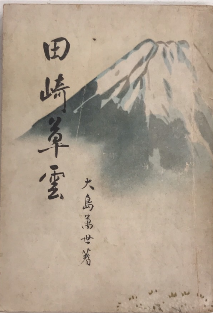 田崎草雲
大島萬世著